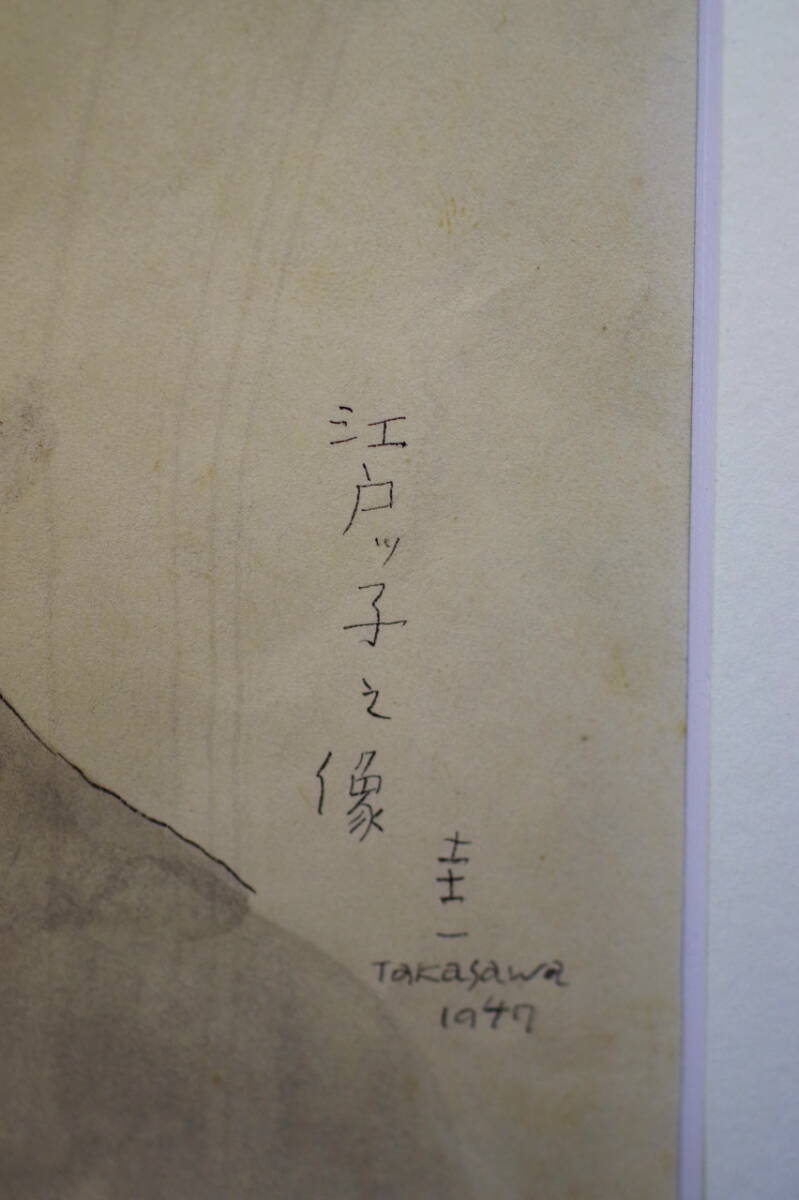 江戸ッ子之像
圭一
Takasawa
1947